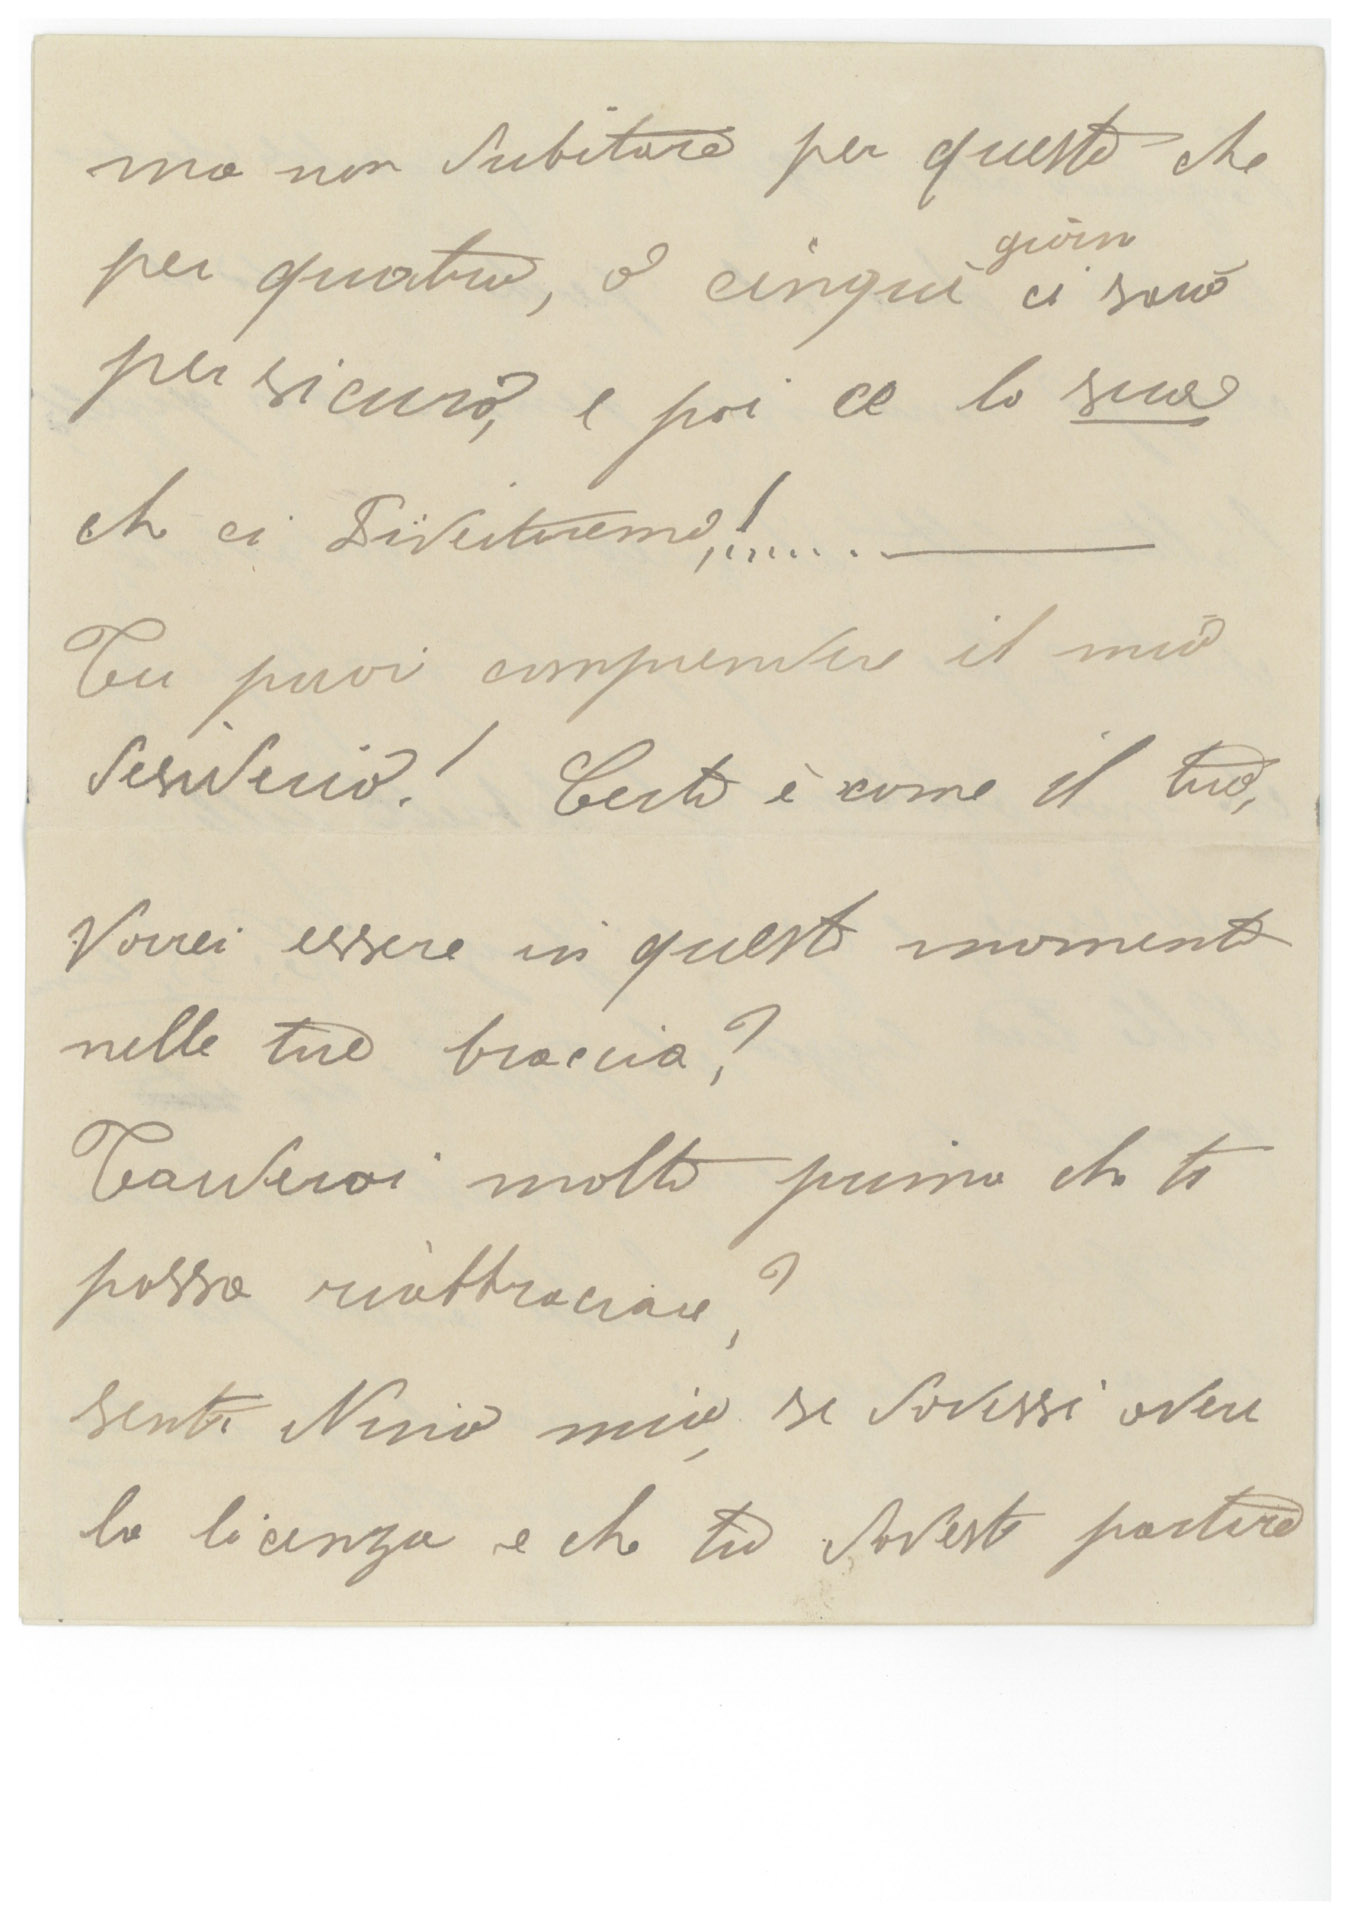 ma non dubitare per questo che
per quatro, o cinque giorni ci sarò
per sicuro, e poi ce lo
che ci Divertiremo,!......
Tu puoi comprendere il mio
desiderio! Certo è come il tuo,
Vorrei essere in questo momento
nelle tue braccia?
Tarderai molto prima che ti
possa riabbraciare,?
senti Nino mio, se dovessi avere
la licenza e che tu dovesti partire